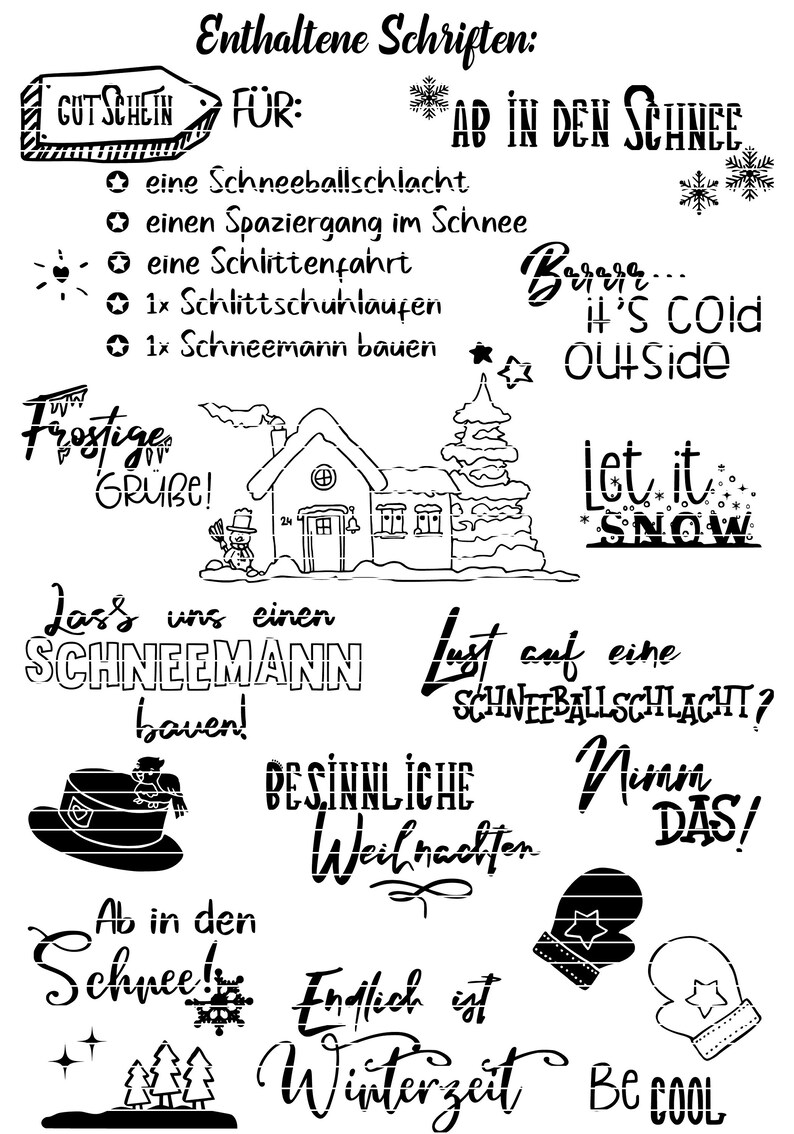 Enthaltene Schriften:
GUTSCHEIN FÜR:
AB IN DEN SCHNEE
eine Schneeballschlacht
einen Spaziergang im Schnee
eine Schlittenfahrt
1x Schlittschuhlaufen
1x Schneemann bauen
Berrrr...
it's cold
outside
Frostige
GRÜßE!
24
Let it
SNOW
Lass uns einen
SCHNEEMANN
bauen!
Lust auf eine
SCHNEEBALLSCHLACHT?
BESINNLICHE
Weihnachten
Nimm
DAS!
Ab in den
Schnee!
Endlich ist
Winterzeit
Be COOL